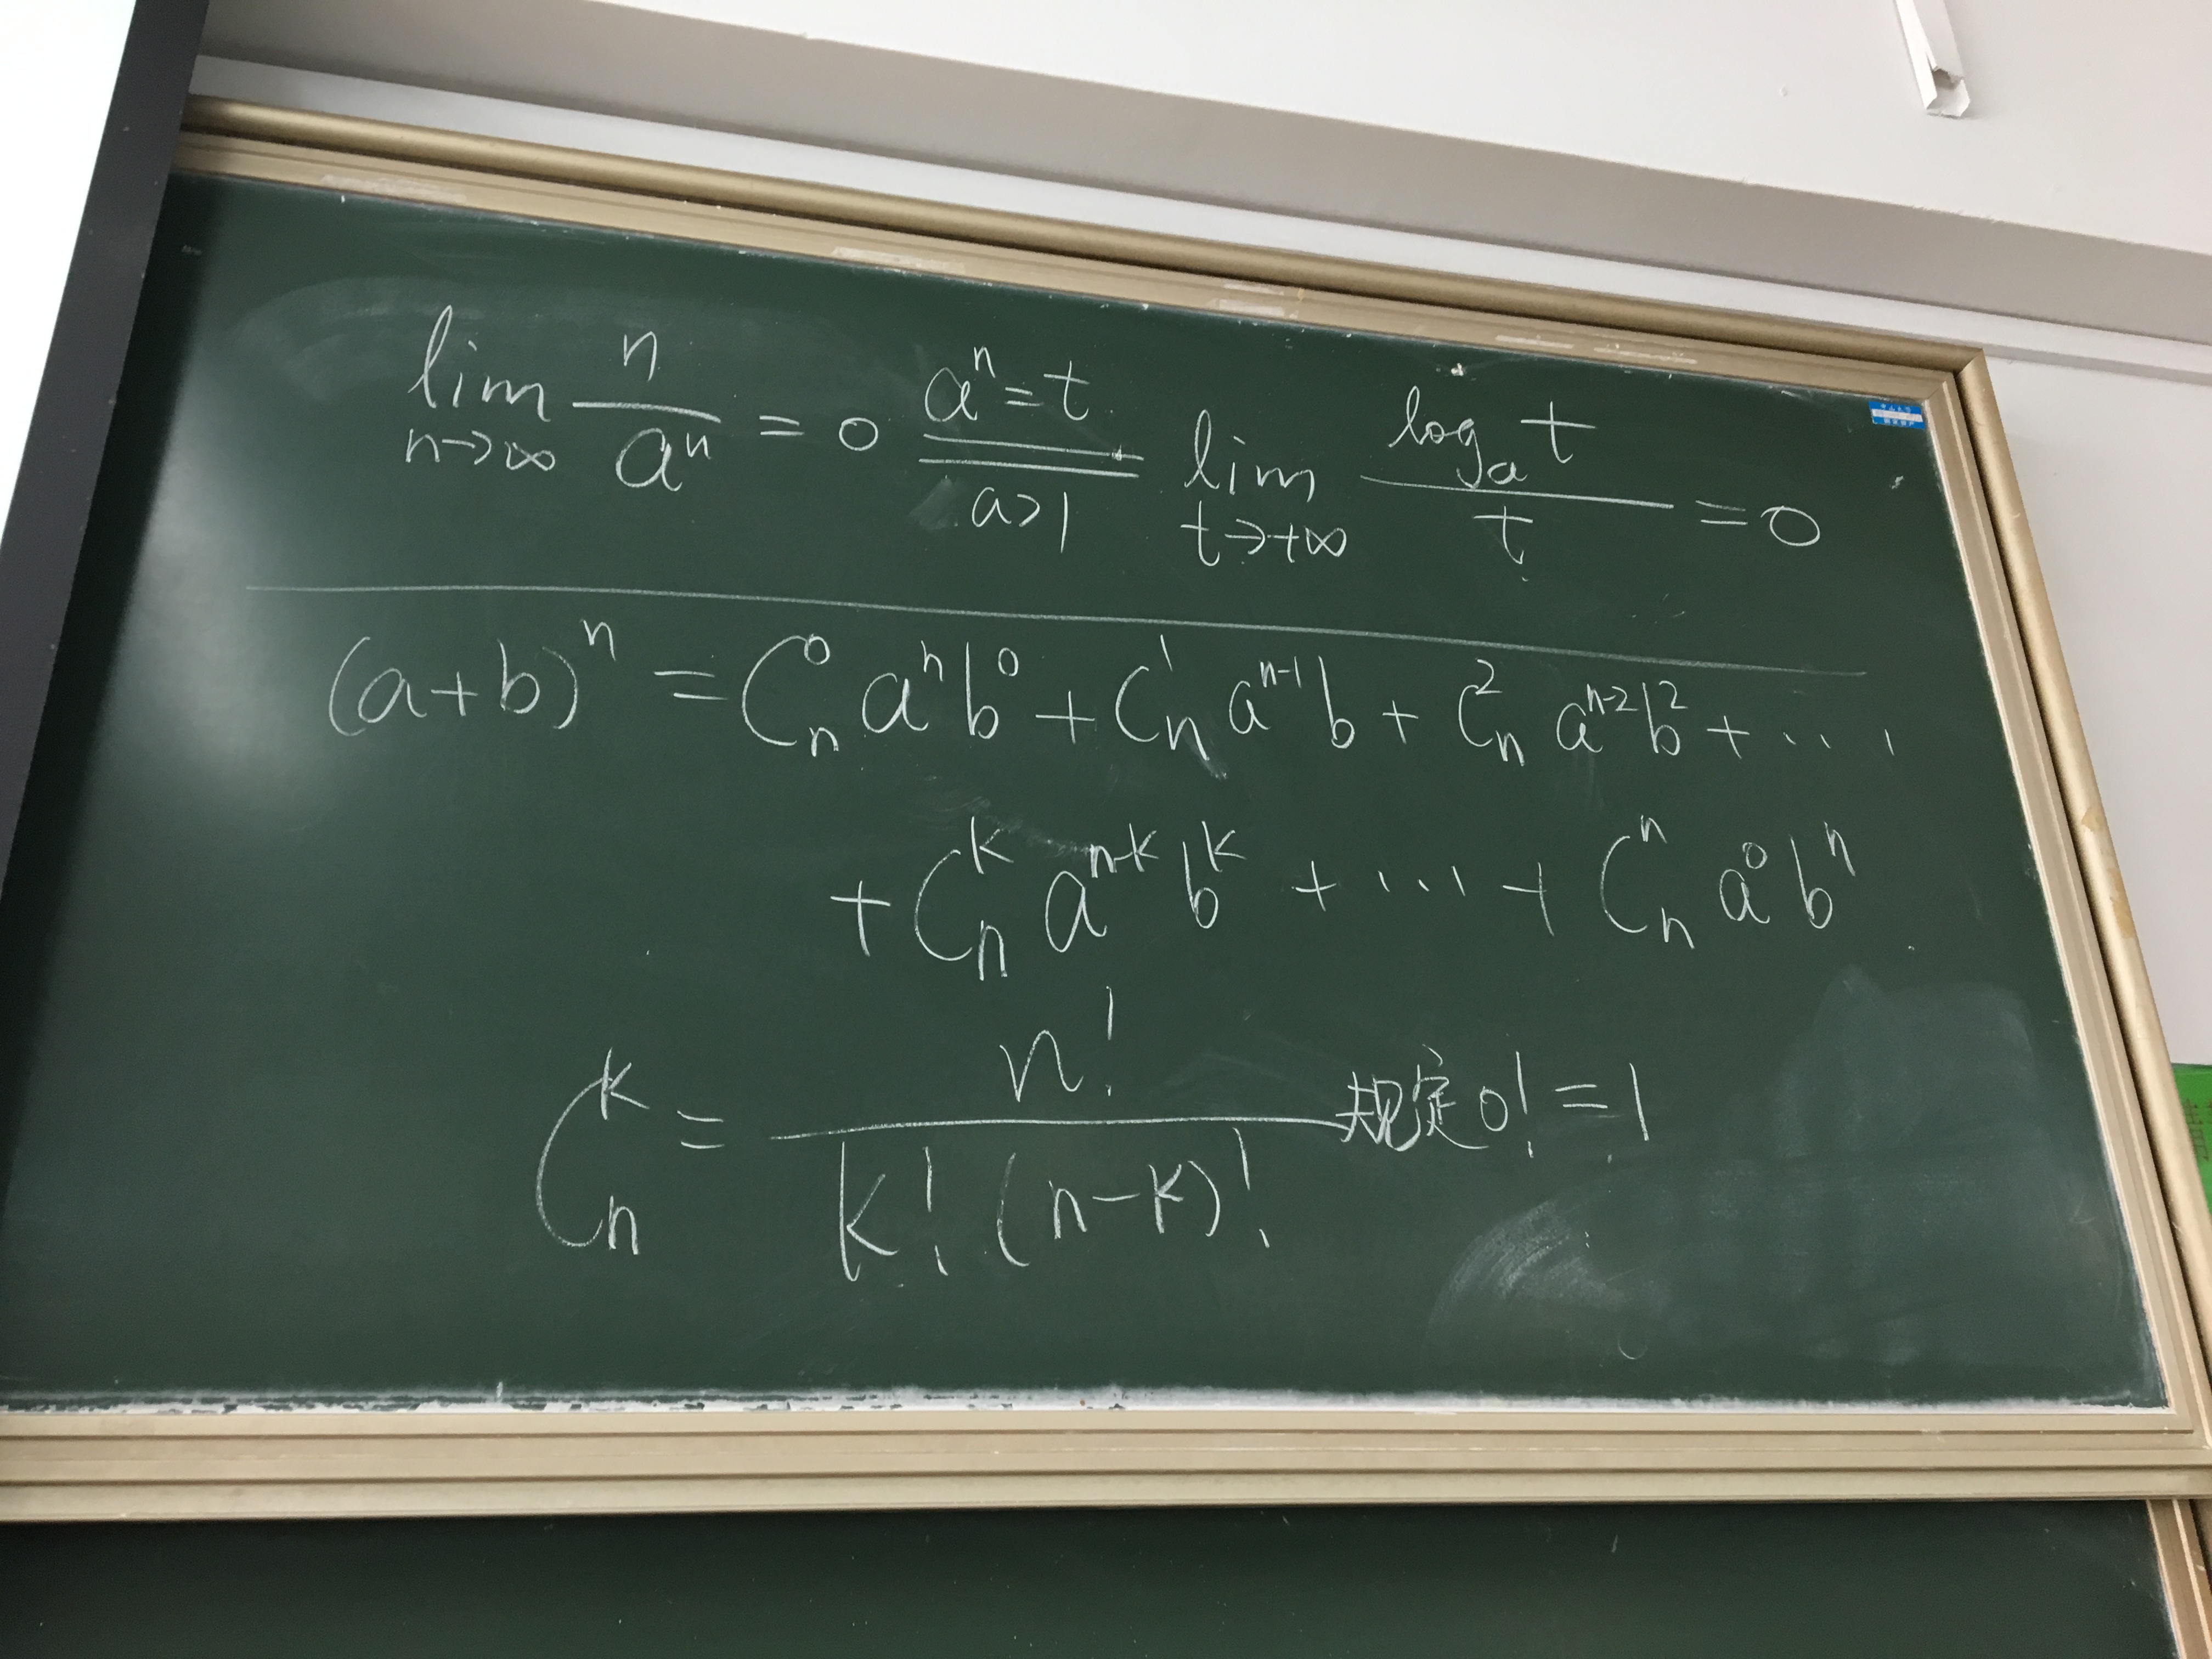 lim n→∞ n/aⁿ = 0 aⁿ=t a>1 lim t→+∞ logₐ t / t = 0
(a+b)ⁿ = Cₙ⁰ aⁿ b⁰ + Cₙ¹ aⁿ⁻¹ b + Cₙ² aⁿ⁻² b² + ...
+ Cₙᵏ aⁿ⁻ᵏ bᵏ + ... + Cₙⁿ a⁰ bⁿ
Cₙᵏ = n! / k! (n-k)! 规定 0! = 1